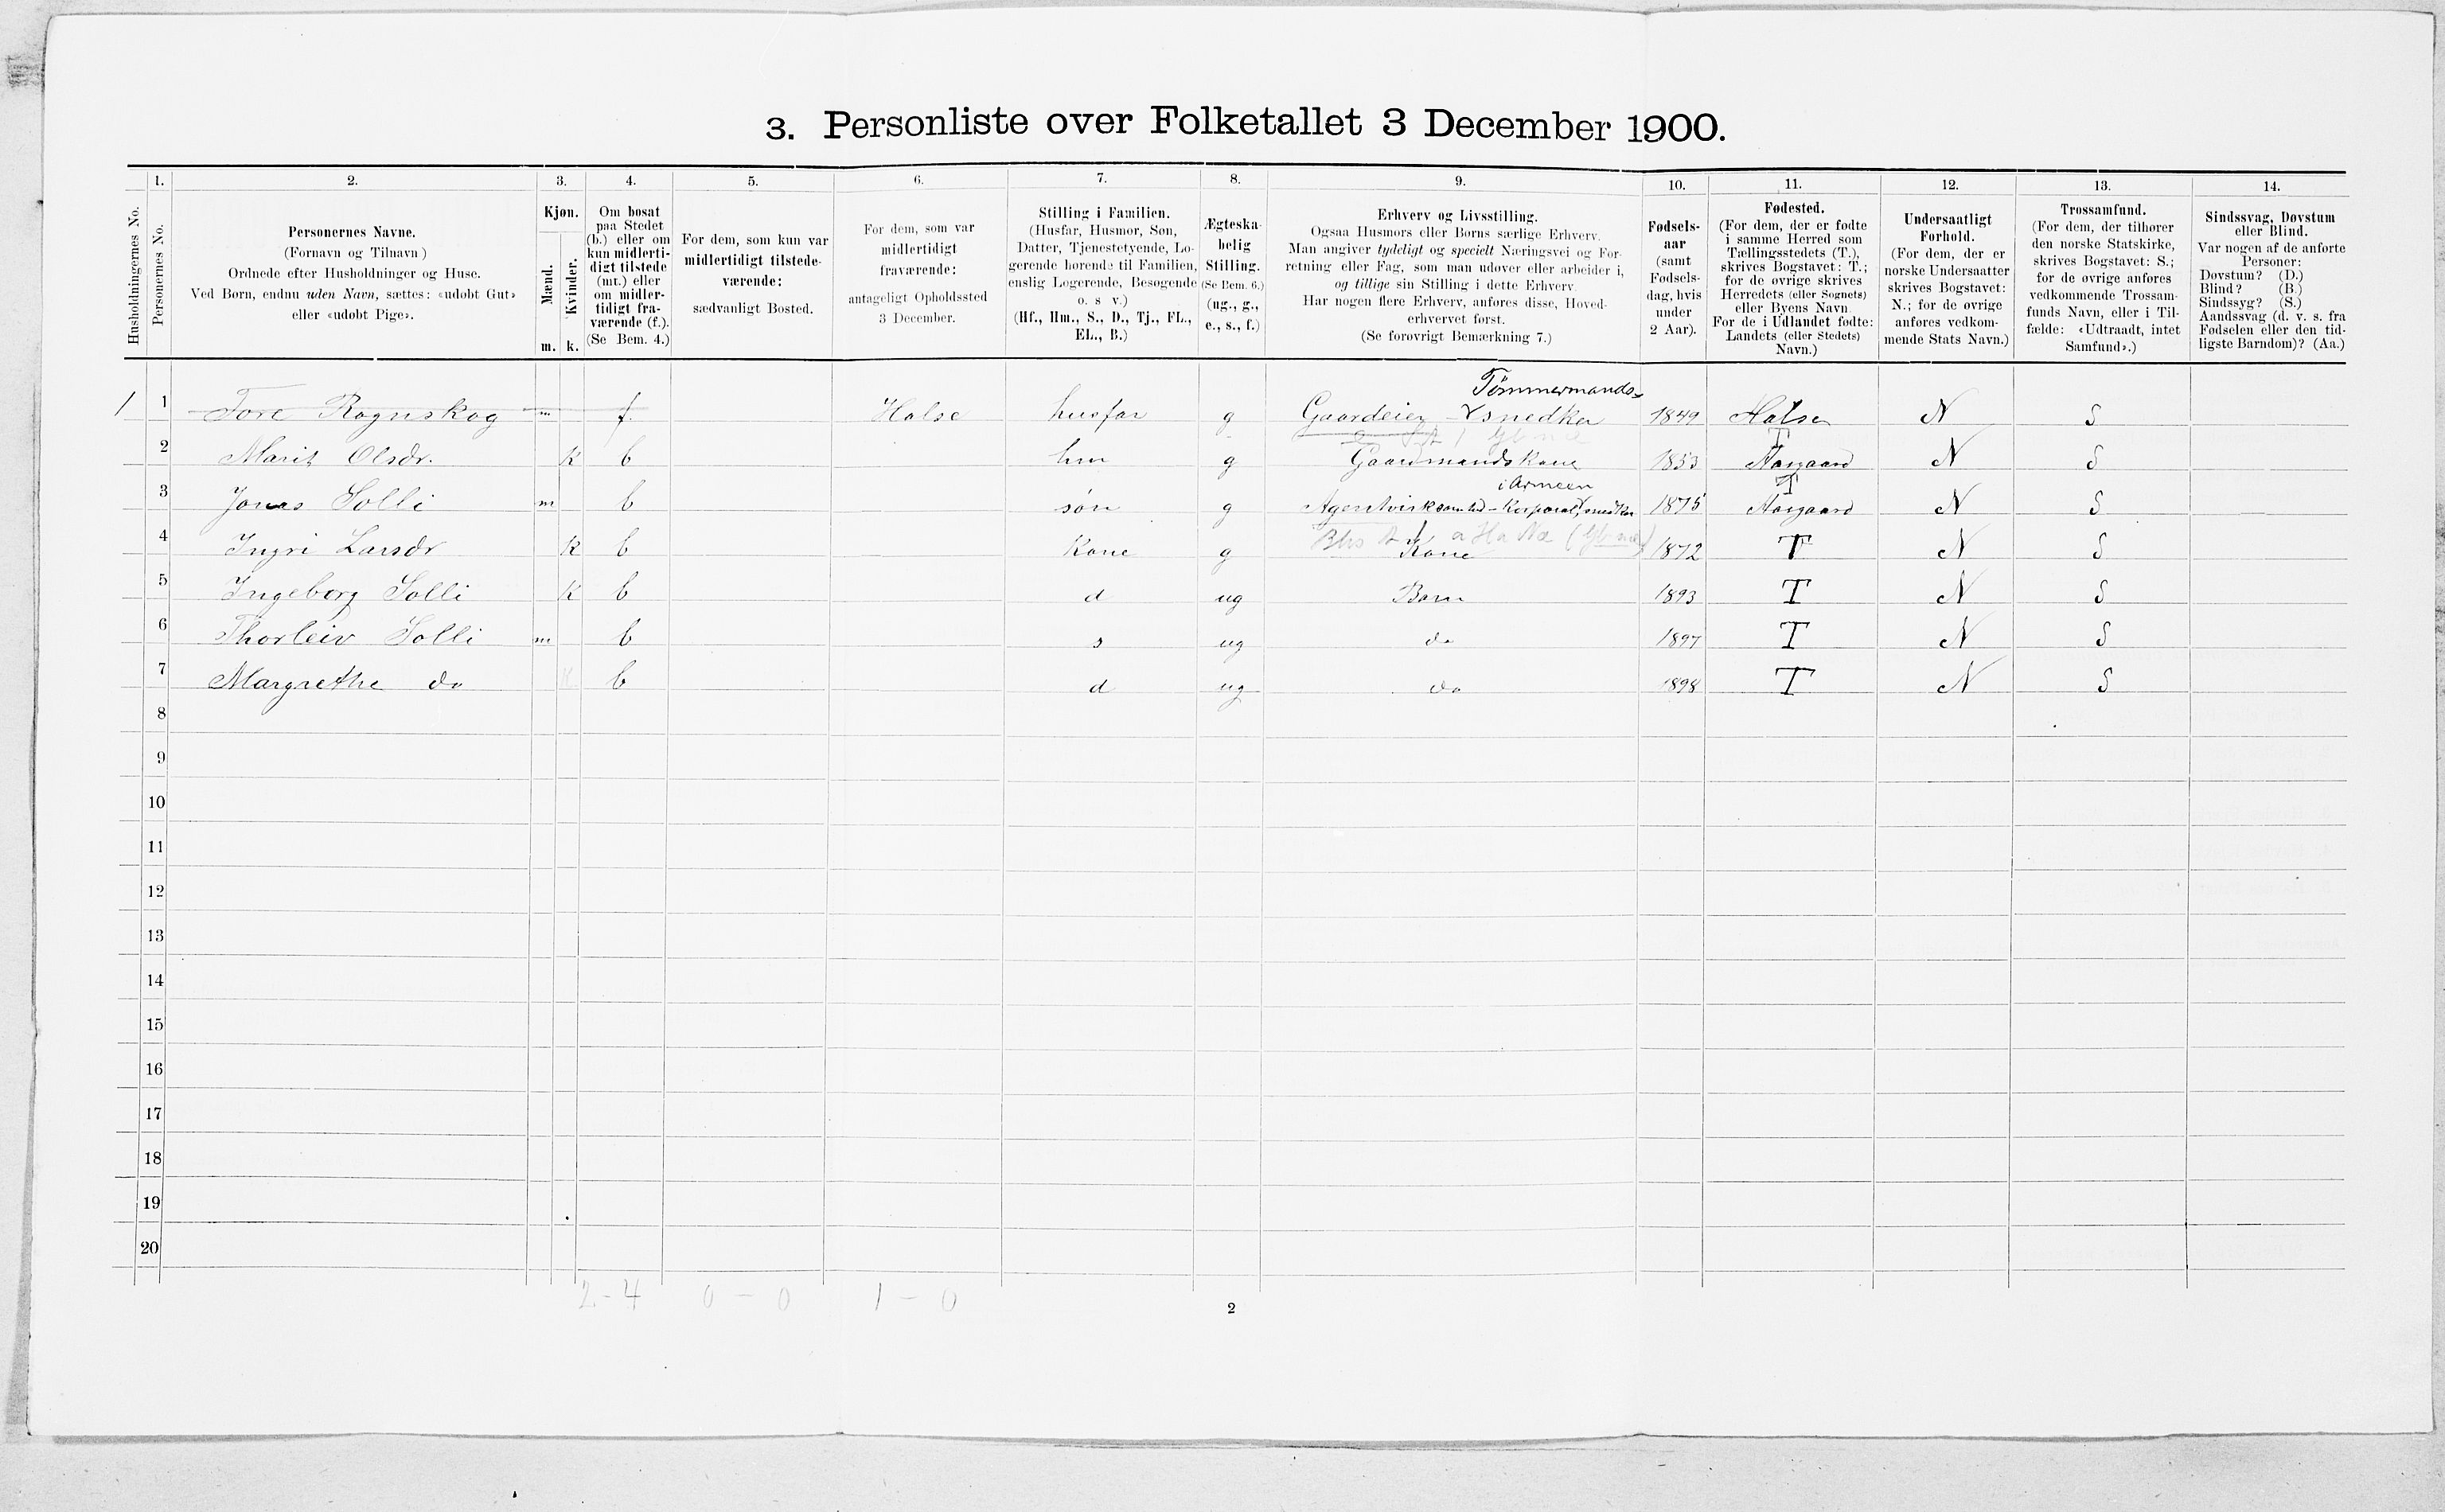 3. Personliste over Folketallet 3 December 1900.
1. 2. 3. 4. 5. 6. 7. 8. 9. 10. 11. 12. 13. 14.
Husholdningernes No.
Personernes No.
Personernes Navne.
(Fornavn og Tilnavn)
Ordnede efter Husholdninger og Huse.
Ved Børn, endnu uden Navn, sættes: «udøbt Gut»
eller «udøbt Pige».
Kjøn.
Mænd.
Kvinder.
m. k.
Om bosat
paa Stedet
(b.) eller om
kun midlerti-
digt tilstede
(mt.) eller
om midler-
tidigt fra-
værende (f.).
(Se Bem. 4.)
For dem, som kun var
midlertidigt tilstede-
værende:
sædvanligt Bosted.
For dem, som var
midlertidigt
fraværende:
antageligt Opholdssted
3 December.
Stilling i Familien.
(Husfar, Husmor, Søn,
Datter, Tjenestetyende, Lo-
gerende hørende til Familien,
enslig Logerende, Besøgende
o. s v.)
(Hf., Hm., S., D., Tj., FL.,
EL., B.)
Ægteska-
belig
Stilling.
(Se Bem. 6.)
(ug., g.,
e., s., f.)
Erhverv og Livsstilling.
Ogsaa Husmors eller Børns særlige Erhverv.
Man angiver tydeligt og specielt Næringsvei og For-
retning eller Fag, som man udøver eller arbeider i,
og tillige sin Stilling i dette Erhverv.
Har nogen flere Erhverv, anføres disse, Hoved-
erhvervet først.
(Se forøvrigt Bemærkning 7.)
Fødsels-
aar
(samt
Fødsels-
dag, hvis
under
2 Aar).
Fødested.
(For dem, der er fødte
i samme Herred som
Tællingsstedets (T.),
skrives Bogstavet: T.;
for de øvrige skrives
Herredets (eller Sognets)
eller Byens Navn.
For de i Udlandet fødte:
Landets (eller Stedets)
Navn.)
Undersaatligt
Forhold.
(For dem, der er
norske Undersaatter
skrives Bogstavet:
N.; for de øvrige
anføres vedkom-
mende Stats Navn.)
Trossamfund.
(For dem, der tilhører
den norske Statskirke,
skrives Bogstavet: S.;
for de øvrige anføres
vedkommende Trossam-
funds Navn, eller i Til-
fælde: «Udtraadt, intet
Samfund».)
Sindssvag, Døvstum
eller Blind.
Var nogen af de anførte
Personer:
Døvstum? (D.)
Blind? (B.)
Sindssyg? (S.)
Aandssvag (d. v. s. fra
Fødselen eller den tid-
ligste Barndom)? (Aa.)
Tømmermands-
1 1 Tore Rognskog m f. Halse husfar g Gaardeier & snedker 1849 Halse N S
T
2 Marit Olsdr. K b hm g Gaardmandskone 1853 Aasgaard N S
i Armeen T
3 Jonas Solli m b søn g Agentvirksomhed - Korporal, snedker 1875 Aasgaard N S
4 Ingri Larsdr K b Kone g Kone 1872 T N S
5 Ingeborg Solli K b d ug Barn 1893 T N S
6 Thorleiv Solli m b s ug do 1897 T N S
7 Margrethe do K b d ug do 1898 T N S
8
9
10
11
12
13
14
15
16
17
18
19
20
2 - 4 0 - 0 1 - 0
2